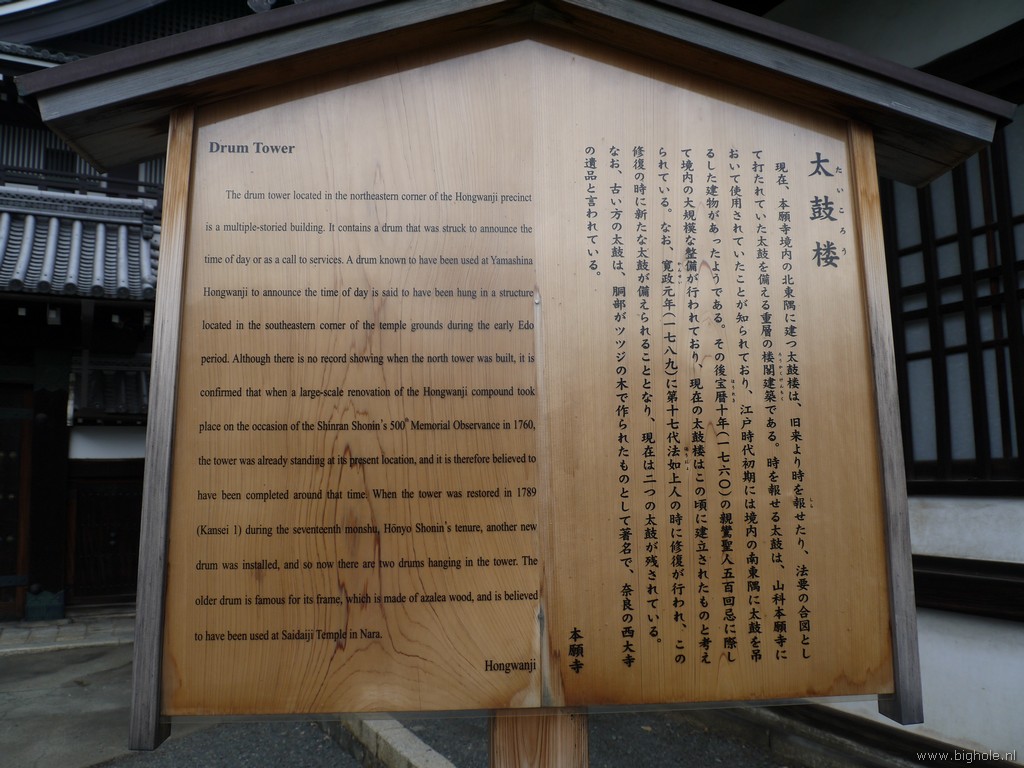 Drum Tower
The drum tower located in the northeastern corner of the Hongwanji precinct
is a multiple-storied building. It contains a drum that was struck to announce the
time of day or as a call to services. A drum known to have been used at Yamashina
Hongwanji to announce the time of day is said to have been hung in a structure
located in the southeastern corner of the temple grounds during the early Edo
period. Although there is no record showing when the north tower was built, it is
confirmed that when a large-scale renovation of the Hongwanji compound took
place on the occasion of the Shinran Shonin's 500th Memorial Observance in 1760,
the tower was already standing at its present location, and it is therefore believed to
have been completed around that time. When the tower was restored in 1789
(Kansei 1) during the seventeenth monshu, Hōnyo Shonin's tenure, another new
drum was installed, and so now there are two drums hanging in the tower. The
older drum is famous for its frame, which is made of azalea wood, and is believed
to have been used at Saidaiji Temple in Nara.
Hongwanji
太鼓楼
たいころう
現在、本願寺境内の北東隅に建つ太鼓楼は、旧来より時を報せたり、法要の合図とし
て打たれていた太鼓を備える重層の楼閣建築である。時を報せる太鼓は、山科本願寺に
おいて使用されていたことが知られており、江戸時代初期には境内の南東隅に太鼓を吊
るした建物があったようである。その後宝暦十年(一七六〇)の親鸞聖人五百回忌に際し
て境内の大規模な整備が行われており、現在の太鼓楼はこの頃に建立されたものと考え
られている。なお、寛政元年(一七八九)に第十七代法如上人の時に修復が行われ、この
修復の時に新たな太鼓が備えられることとなり、現在は二つの太鼓が残されている。
なお、古い方の太鼓は、胴部がツツジの木で作られたものとして著名で、奈良の西大寺
の遺品と言われている。
本願寺
www.bighole.nl